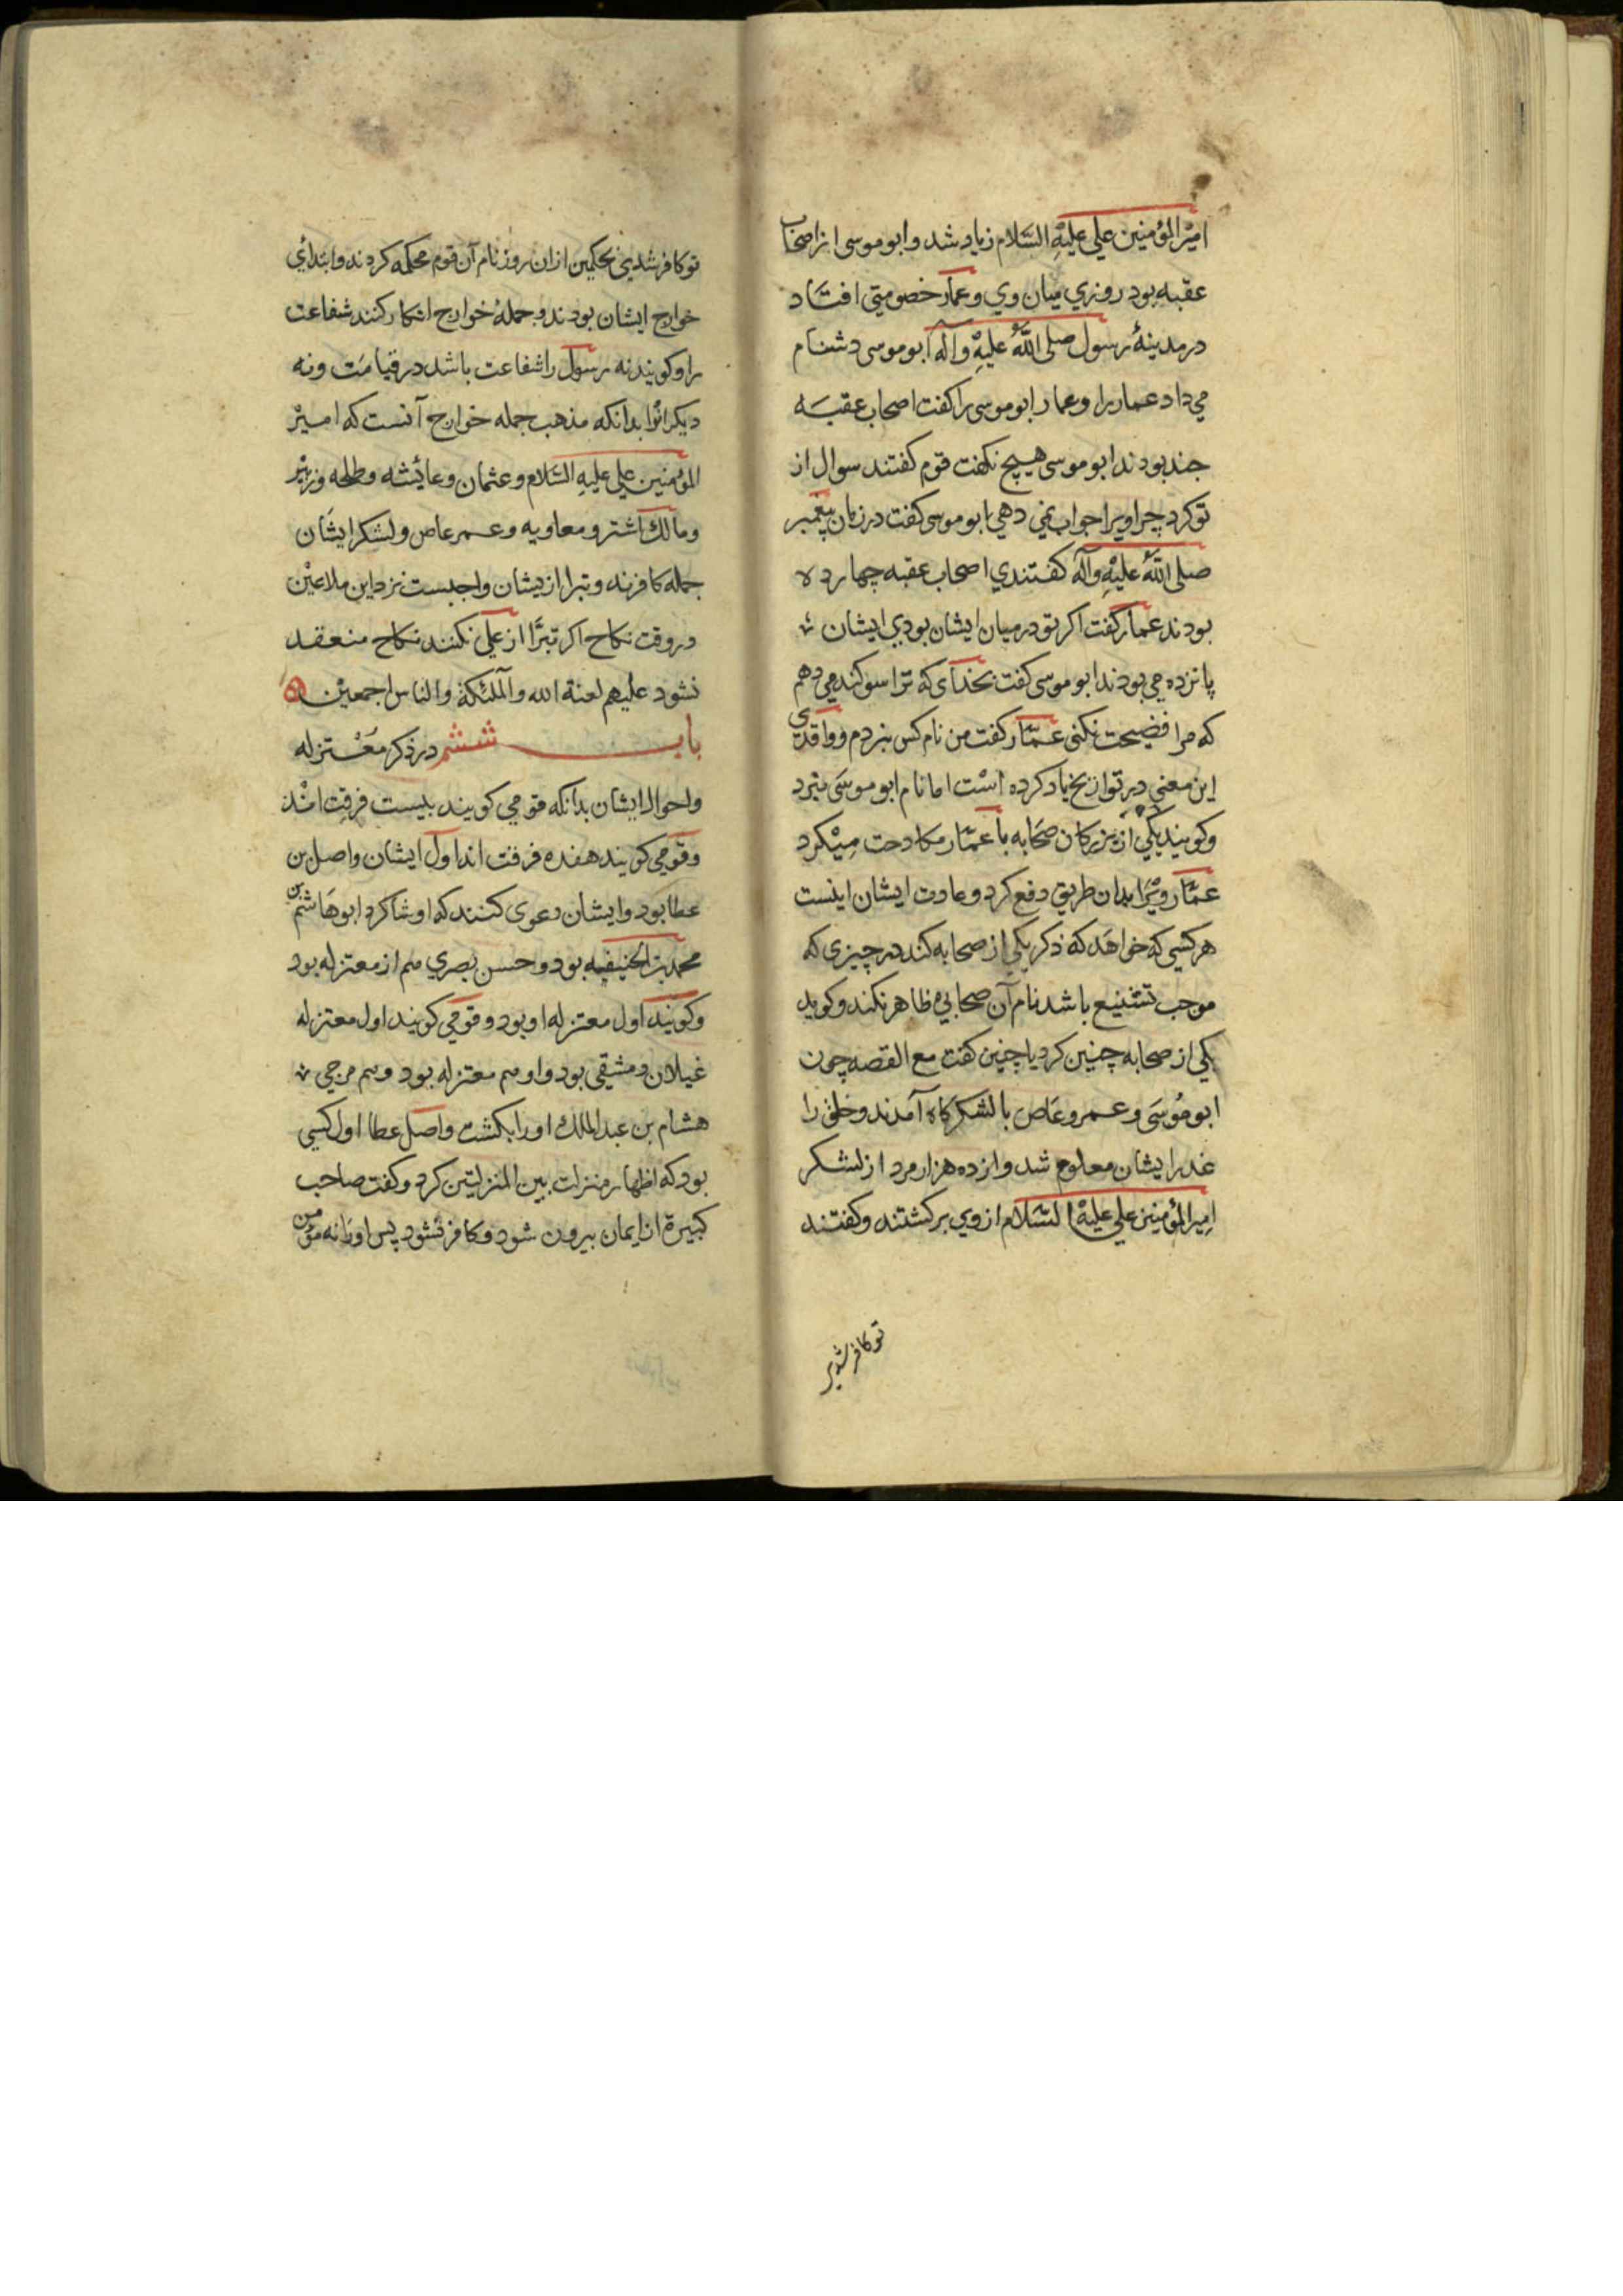 امیر المؤمنین علی علیه السلام زیاد شد و ابو موسی از اصحاب
عقبه بود روزی میان وی و عمار خصومتی افتاد
در مدینهٔ رسول صلی الله علیه وآله ابو موسی دشنام
می داد عمار را و عمار ابو موسی را کفت اصحاب عقبه
جند بودند ابو موسی هیچ نکفت قوم کفتند سوال از
تو کرد چرا ویرا جواب نمی دهی ابو موسی کفت در زمان پیغمبر
صلی الله علیه وآله کفتندی اصحاب عقبه چهارده
بودند عمار کفت اکر تو در میان ایشان بودی ایشان
پانزده می بودند ابو موسی کفت بخدای که ترا سوکند می دهم
که مرا فضیحت نکنی عمار کفت من نام کس نبردم و واقدی
این معنی در تواریخ یاد کرده است اما نام ابو موسی نبرد
و کویند یکی از بزرکان صحابه با عمار مکادحت میکرد
عمار ویرا بدان طریق دفع کرد و عادت ایشان اینست
هر کسی که خواهد که ذکر یکی از صحابه کند در چیزی که
موجب تشنیع باشد نام آن صحابی ظاهر نکند و کوید
یکی از صحابه چنین کرد یا چنین کفت مع القصه چون
ابو موسی و عمرو عاص با لشکرکاه آمدند و خلق را
غدر ایشان معلوم شد دوازده هزار مرد از لشکر
امیر المؤمنین علی علیه السلام از وی برکشتند و کفتند
تو کافر شدی
تو کافر شدی بحکمین از ان روز نام آن قوم محکمه کردند و ابتدای
خوارج ایشان بودند و جملهٔ خوارج انکار کنند شفاعت
را و کویند نه رسول را شفاعت باشد در قیامت و نه
دیکرانرا بدانکه مذهب جمله خوارج آنست که امیر
المؤمنین علی علیه السلام و عثمان و عائشه و طلحه و زبیر
و مالک اشتر و معاویه و عمر عاص و لشکر ایشان
جمله کافرند و تبرا ازیشان واجبست نزد این ملاعین
در وقت نکاح اکر تبرّا از علی نکنند نکاح منعقد
نشود علیهم لعنة الله والملئکة والناس اجمعین
باب ششم در ذکر معتزله
و احوال ایشان بدانکه قومی کویند بیست فرقت اند
و قومی کویند هفده فرقت اند اول ایشان واصل بن
عطا بود و ایشان دعوی کنند که او شاکرد ابو هاشم بن
محمد بن الحنیفیه بود و حسن بصری هم از معتزله بود
و کویند اول معتزله او بود و قومی کویند اول معتزله
غیلان دمشقی بود و او هم معتزله بود و هم مرجی
هشام بن عبد الملک اورا بکشت واصل عطا اول کسی
بود که اظهار منزلت بین المنزلتین کرد و کفت صاحب
کبیرة از ایمان بیرون شود و کافر نشود پس اورا نه مؤمن